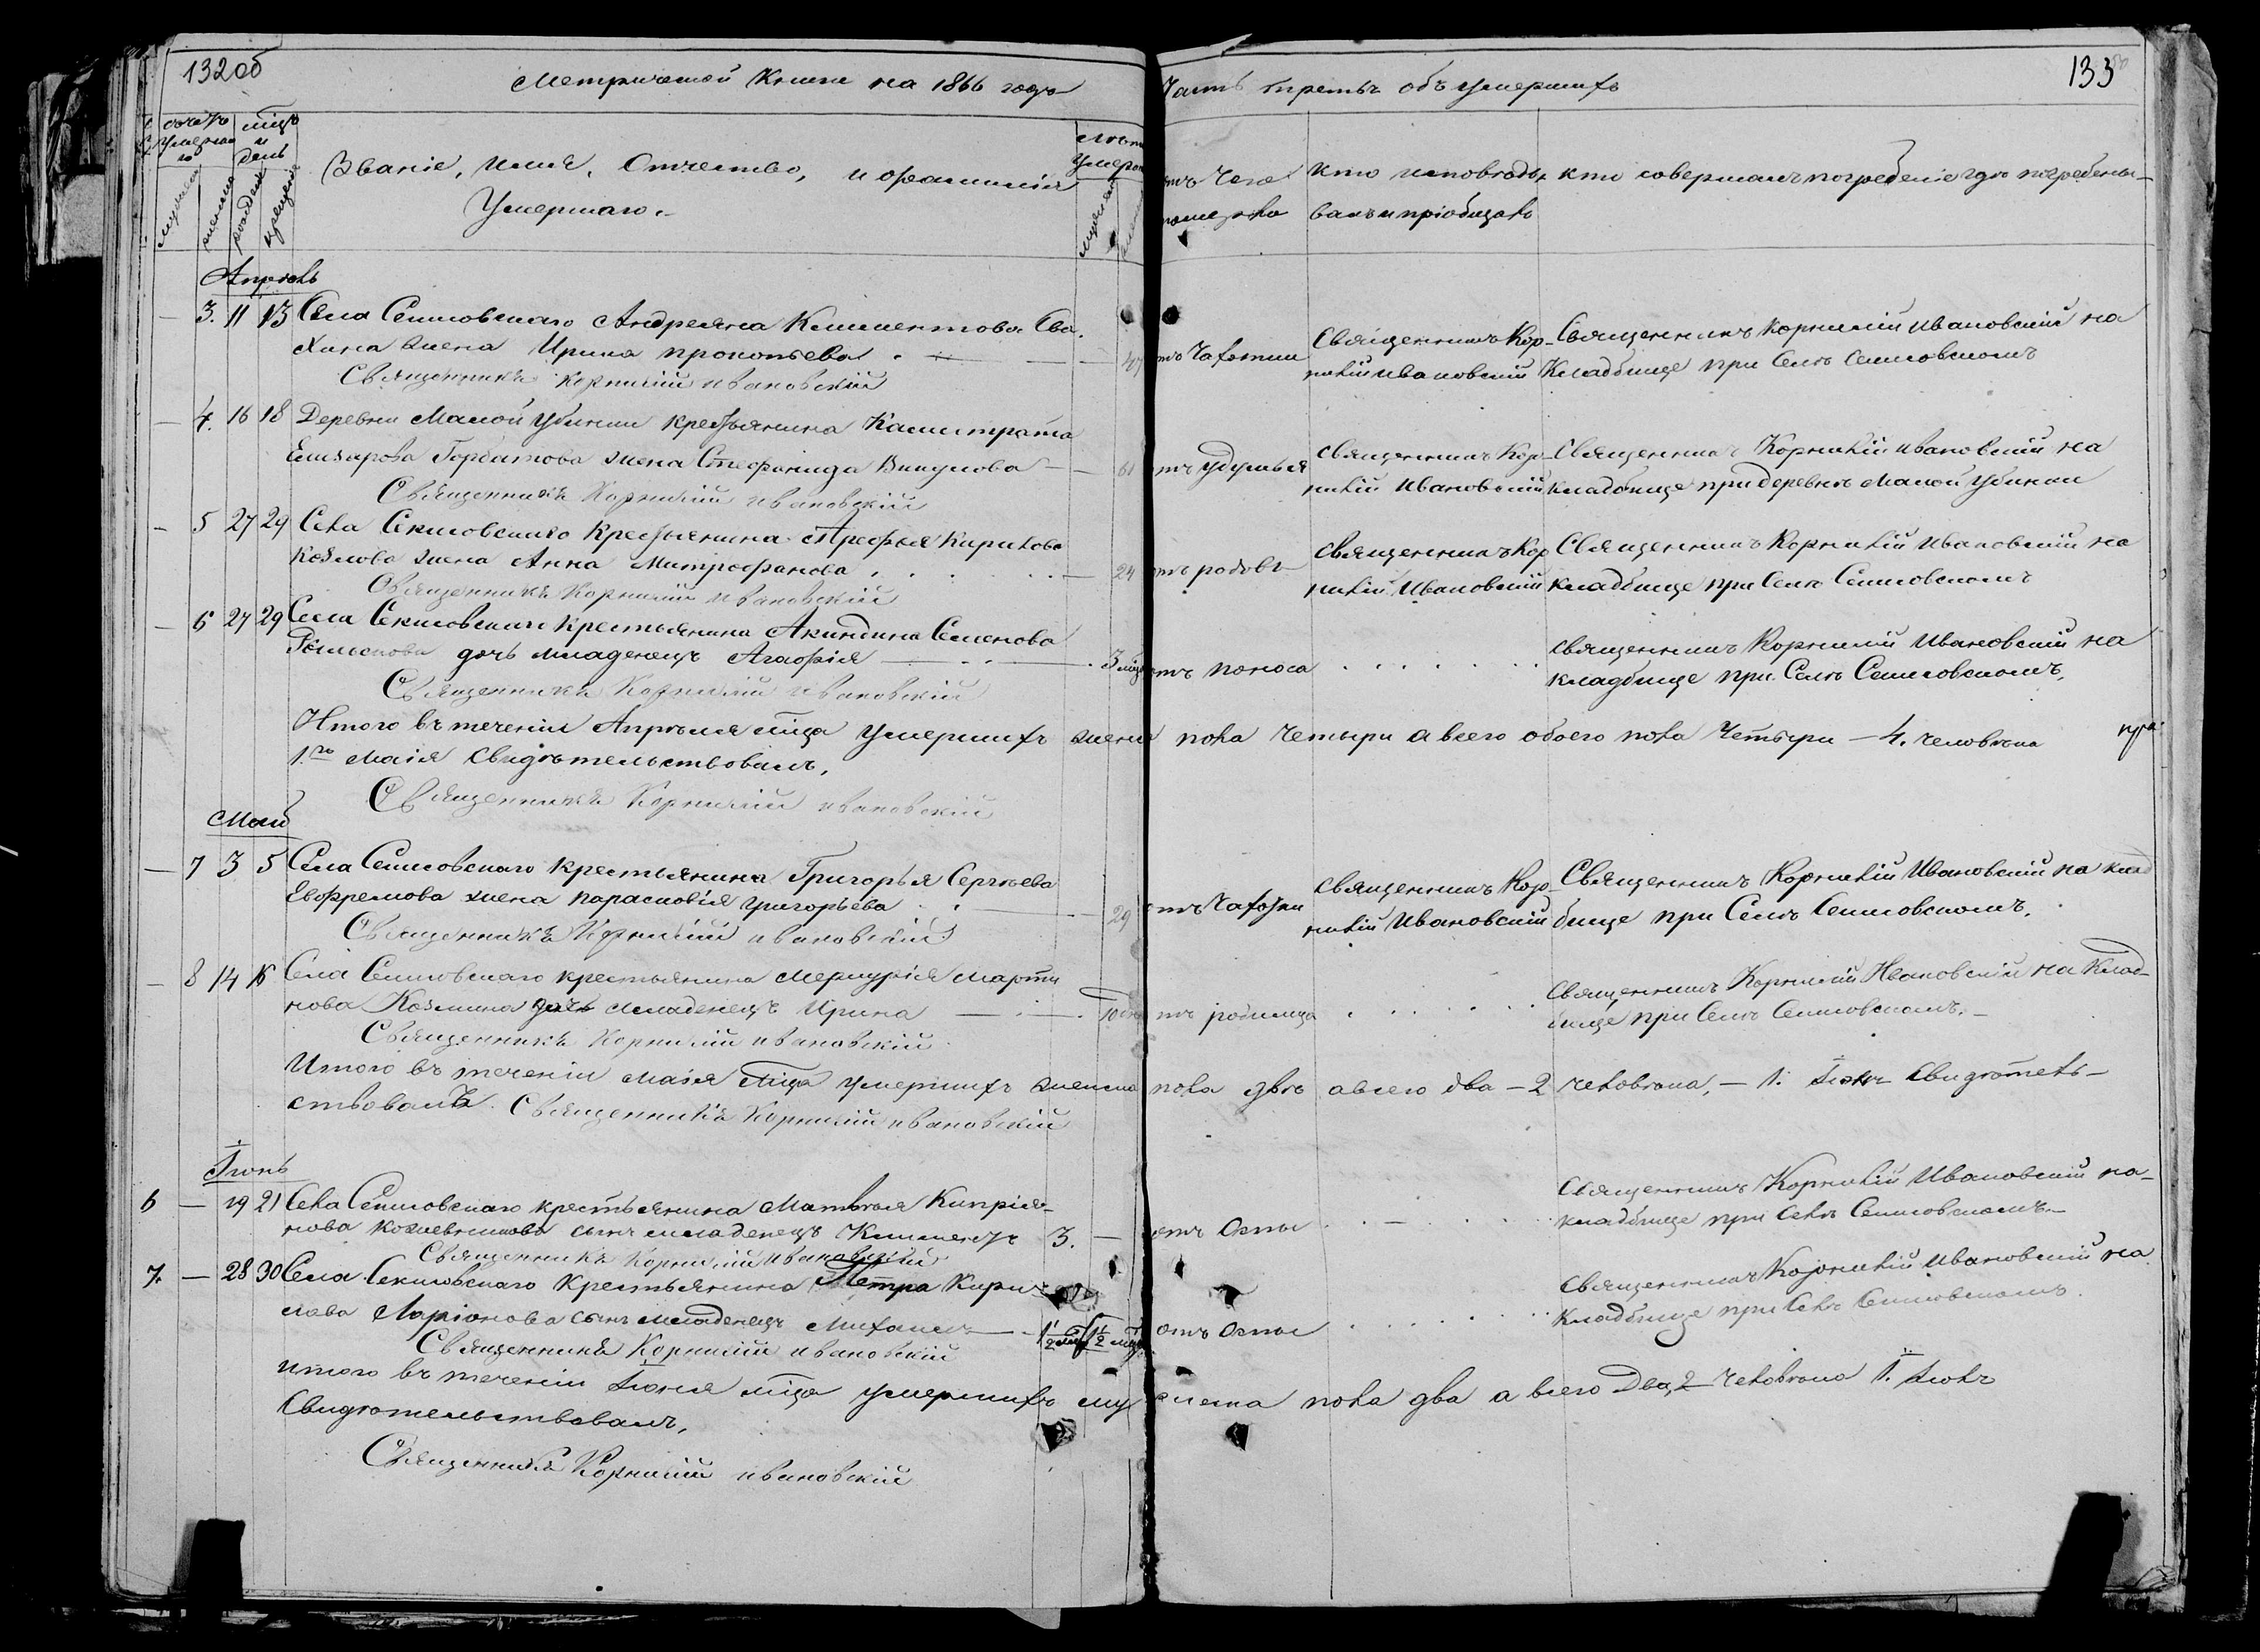 132об
Метрической Книги на 1866 годъ
Часть третья объ умершихъ
133
Счетъ умершихъ
мужеска
женска
мѣцъ и день
Званіе, Имя, Отчество, и фамилія
Умершаго.
Лѣта умершаго
отъ чего померъ
кто исповѣдывалъ и пріобщалъ
кто совершалъ погребеніе и гдѣ погребены
Апрѣль
3. 11 13 Села Секисовскаго Андреяна Климентова
жена Ирина Прокопьева 47 отъ Чахотки Священникъ Корнилій Ивановскій Священникъ Корнилій Ивановскій на
Кладбище при Селѣ Секисовскомъ
Священникъ Корнилій Ивановскій
4. 16 18 Деревни Малой Убинки крестьянина Калистрата
Елизарова Горбатова жена Стефанида Викулова 61 отъ удушья Священникъ Корнилій Ивановскій Священникъ Корнилій Ивановскій на
кладбище при деревнѣ Малой Убинки
Священникъ Корнилій Ивановскій
5 27 29 Села Секисовскаго Крестьянина Арефья Кирилова
Козлова жена Анна Митрофанова 24 отъ родовъ Священникъ Корнилій Ивановскій Священникъ Корнилій Ивановскій на
кладбище при Селѣ Секисовскомъ
Священникъ Корнилій Ивановскій
6 27 29 Села Секисовскаго Крестьянина Акиндина Семенова
дочь младенецъ Агафія 3 мѣц отъ поноса Священникъ Корнилій Ивановскій на
кладбище при Селѣ Секисовскомъ,
Священникъ Корнилій Ивановскій
Итого въ теченіи Апрѣля мѣца умершихъ женска пола Четыри а всего обоего пола Четыри — 4. человѣка
1го Маія Свидѣтельствовалъ,
Священникъ Корнилій Ивановскій
Май
7 3 5 Села Секисовскаго крестьянина Григорья Сергѣева
Евфремова жена Парасковія Григорьева 29 отъ Чахотки Священникъ Корнилій Ивановскій Священникъ Корнилій Ивановскій на клад
бище при Селѣ Секисовскомъ.
Священникъ Корнилій Ивановскій
8 14 16 Села Секисовскаго крестьянина Меркурія Марты
нова Козьмина дочь младенецъ Ирина 10 дн отъ родимца Священникъ Корнилій Ивановскій на Клад
бище при Селѣ Секисовскомъ.
Священникъ Корнилій Ивановскій
Итого въ теченіи Маія мѣца умершихъ женска пола двѣ а всего два — 2 человѣка, — 1. Іюня Свидѣтель
ствовалъ. Священникъ Корнилій Ивановскій
Іюнь
6 — 19 21 Села Секисовскаго крестьянина Матвѣя Кипрія
нова Кожевникова сынъ младенецъ Климентъ 3. — отъ Оспы Священникъ Корнилій Ивановскій на
кладбище при Селѣ Секисовскомъ
Священникъ Корнилій Ивановскій
7. — 28 30 Села Секисовскаго Крестьянина Петра Кири
лова Ларіонова сынъ младенецъ Михаилъ 1 1/2 мѣц 1 1/2 мѣц отъ Оспы Священникъ Корнилій Ивановскій на
кладбище при Селѣ Секисовскомъ.
Священникъ Корнилій Ивановскій
Итого въ теченіи Іюня мѣца умершихъ мужеска пола два а всего Два, 2 человѣка 1. Іюля
Свидѣтельствовалъ,
Священникъ Корнилій Ивановскій